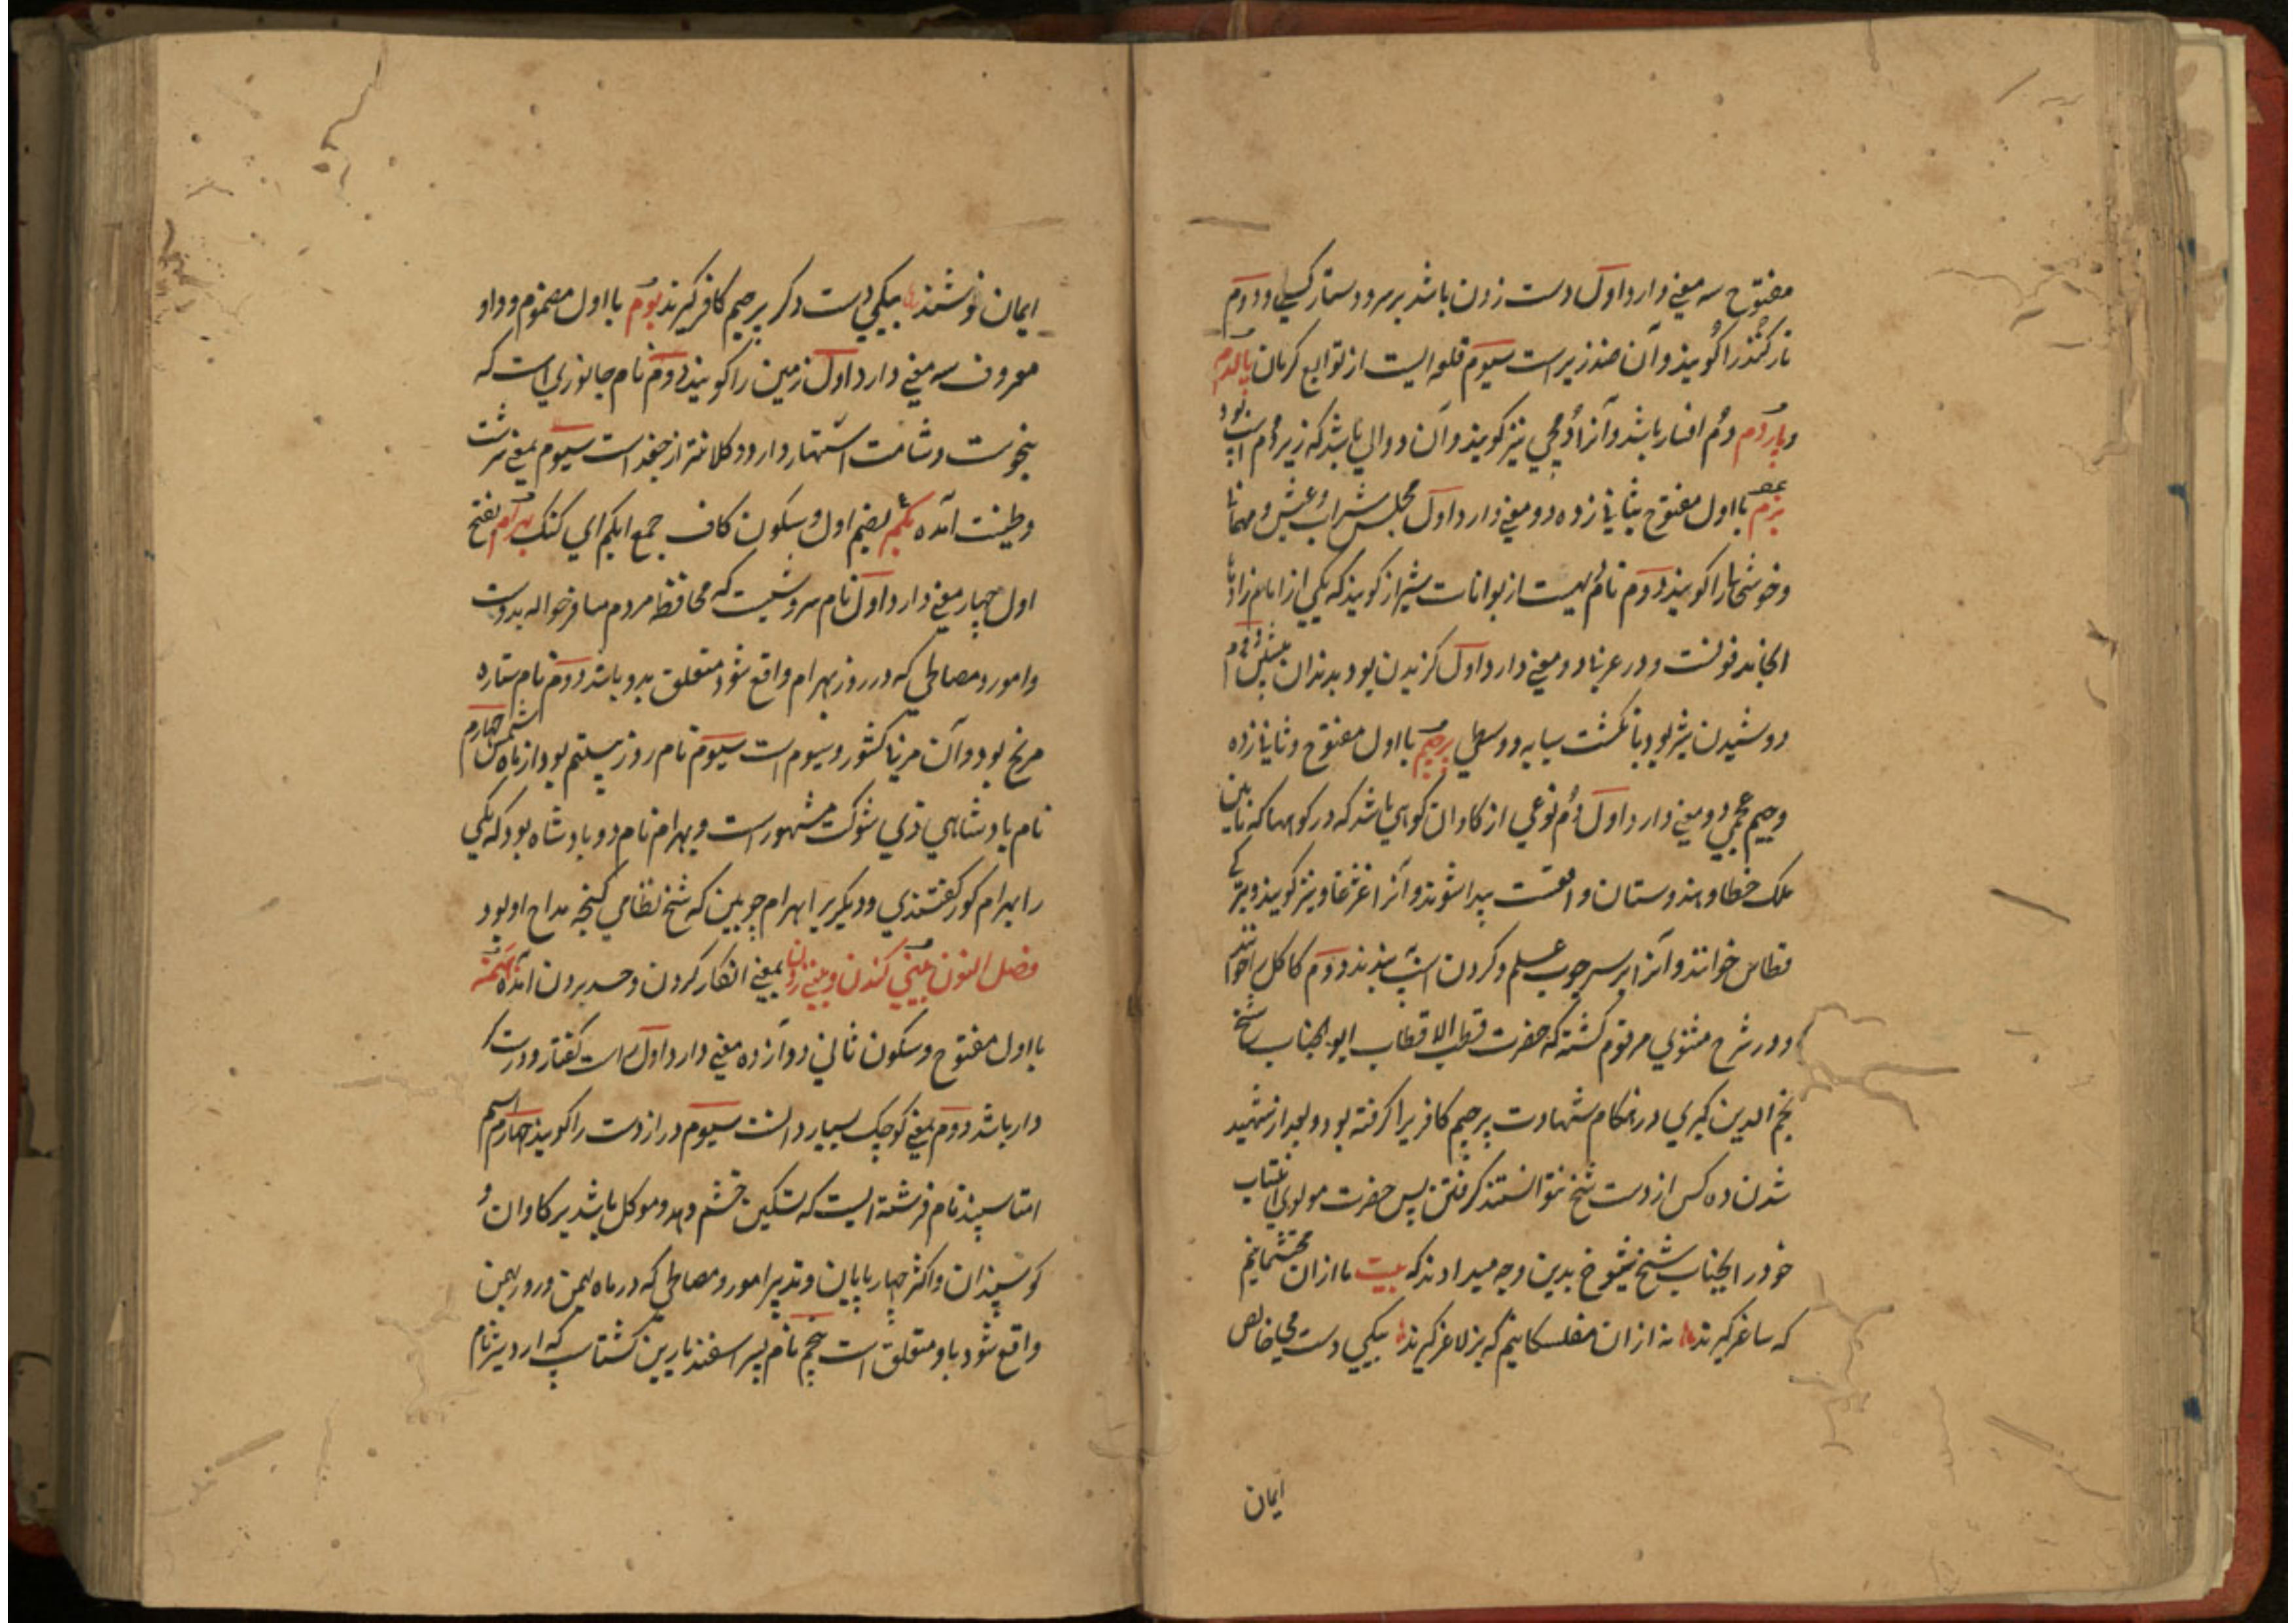 مفتوح سه معنی دارد اول دست زدن باشد بر سر و دستار کسی و دوم
نارکند را گویند و آن ضد زیر است سیوم قلعه ایست از توابع کرمان پالدم
و پاردم دم افسار باشد و آنرا دمچی نیز گویند و آن دوالی باشد که زیر دم اسپ بود
بزم با اول مفتوح بثانی زده دو معنی دارد اول مجلس شراب و عیش و مهمانی
و خوشی را گویند دوم نام دهیست از بوانات شیراز گویند که یکی از امام زادها
انجا مدفونست و در عربی دو معنی دارد اول گزیدن بود بدندان پیش دوم
دوشیدن شیر بود بانگشت سبابه و وسطی پرچم با اول مفتوح و ثانی زده
و جیم عجمی دو معنی دارد اول دم نوعی از گاوان کوهی باشد که در کوهها که مابین
ملک خطا و هندوستان واقعست پیدا شوند و آنرا غژغاو نیز گویند و بترکی
قطاس خوانند و آنرا بر سر چوب علم و گردن اسپ بندند دوم کاکل را خوانند
و در شرح مثنوی مرقوم گشته که حضرت قطب الاقطاب ابو الجناب شیخ
نجم الدین کبری در هنگام شهادت پرچم کافریرا گرفته بود و بعد از شهید
شدن ده کس از دست شیخ نتوانستند گرفتن پس حضرت مولوی انتساب
خود را بجناب شیخ شیوخ بدین وجه میدادند که بیت ما از ان محتشمانیم
که ساغر گیرند نه از ان مفلسکانیم که بز لاغر گیرند بیکی دست می خالص
ایمان
ایمان نوشند بیکی دست دگر پرچم کافر گیرند بوم با اول مضموم و واو
معروف سه معنی دارد اول زمین را گویند دوم نام جانوری است که
بنحوست و شامت اشتهار دارد و کلانتر از جغد است سیوم بمعنی سرشت
و طینت آمده بکم بضم اول و سکون کاف جمع ابکم ای گنگ بهرام بفتح
اول چهار معنی دارد اول نام سروشیست که محافظه مردم مسافر حواله بدوست
و امور و مصالحی که در روز بهرام واقع شود متعلق بدو باشد دوم نام ستاره
مریخ بود و آن مربی کشور سیوم است سیوم نام روز بیستم بود از ماه شمسی چهارم
نام پادشاهی ذی شوکت مشهور است و بهرام نام دو پادشاه بود که یکی
را بهرام گور گفتندی و دیگریرا بهرام چوبین که شیخ نظامی گنجه مداح او بود
فصل النون بمعنی انکار کردن و حسد بردن آمده بهمن
با اول مفتوح و سکون ثانی دوازده معنی دارد اول راست گفتار و درست
دار باشد دوم بمعنی کوچک بسیار دانست سیوم دراز دست را گویند چهارم اسم
امشاسپند نام فرشته ایست که تسکین خشم دهد و موکل باشد بر گاوان و
گوسپندان و اکثر چهارپایان و تدبیر امور و مصالحی که در ماه بهمن و روز بهمن
واقع شود باو متعلق است پنجم نام پسر اسفندیار بن گشتاسپ که اردشیر نام